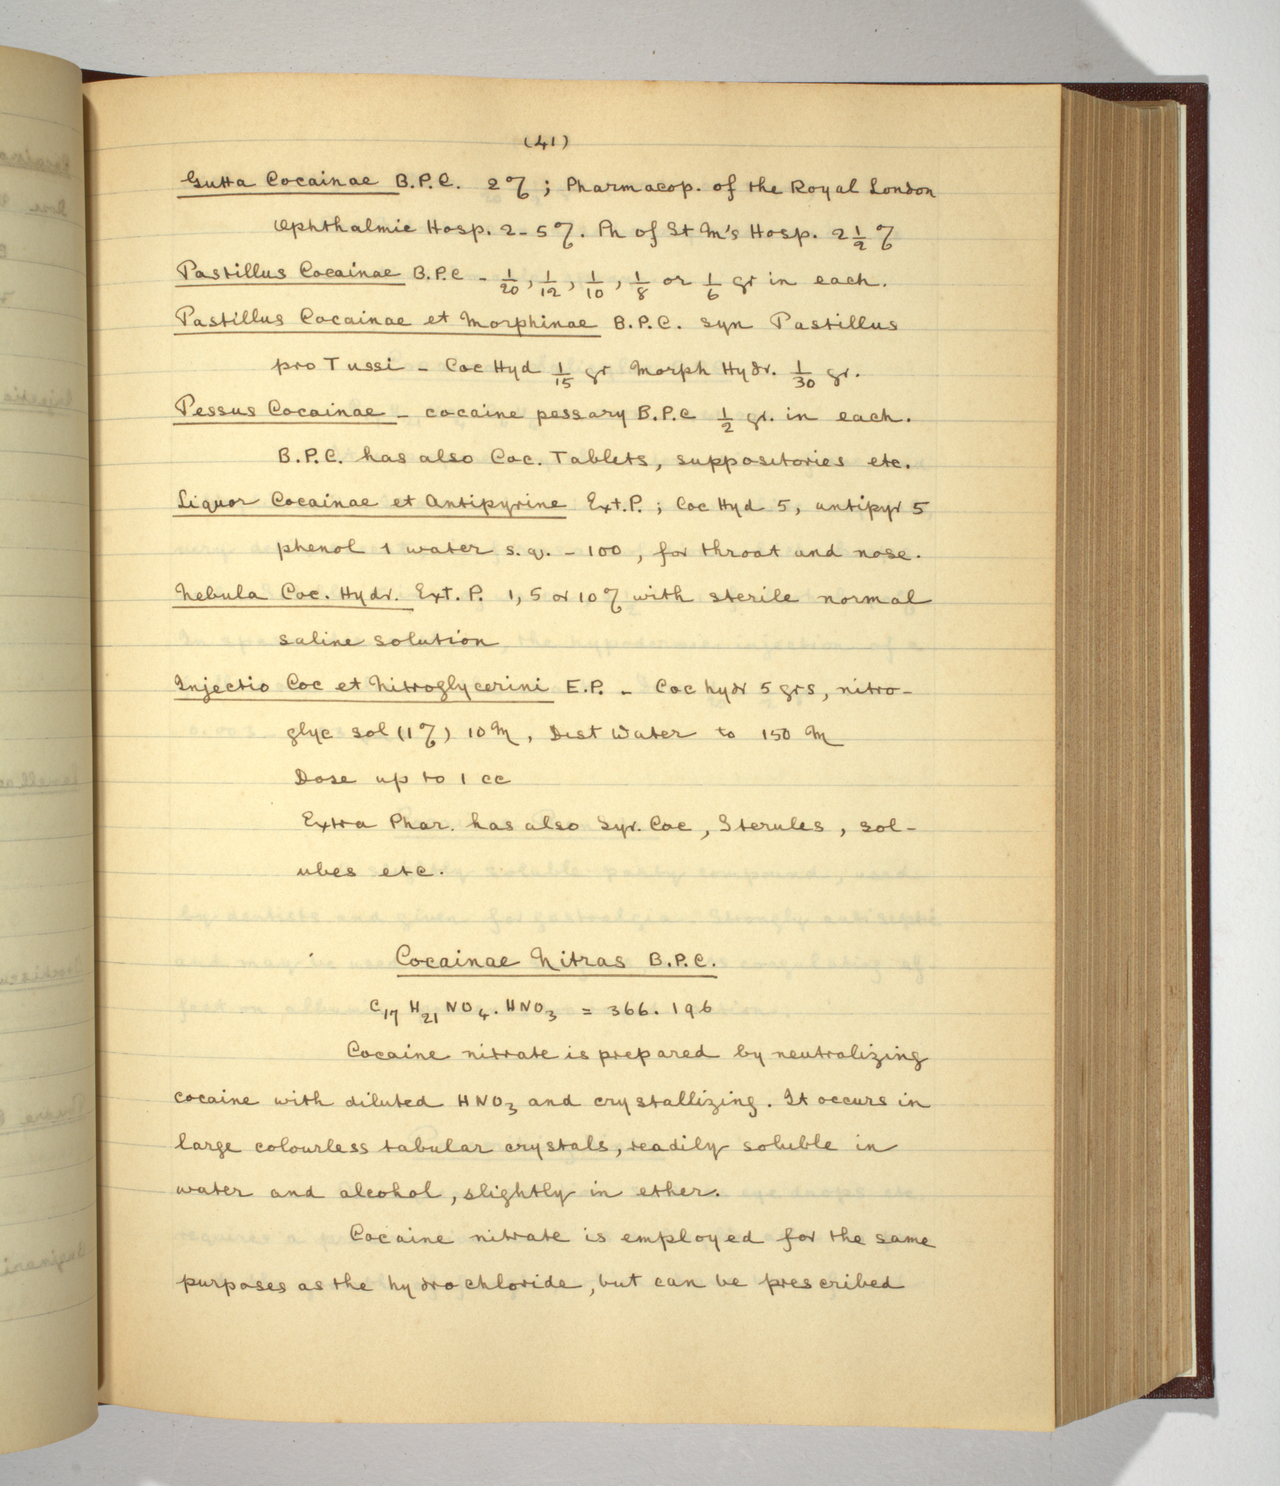 (41)
Gutta Cocainae B.P.C. 2%; Pharmacop. of the Royal London
Ophthalmic Hosp. 2-5%. Ph of St M's Hosp. 2½%
Pastillus Cocainae B.P.C - 1/20, 1/12, 1/10, 1/8 or 1/6 gr in each.
Pastillus Cocainae et Morphinae B.P.C. Syn Pastillus
pro Tussi - Coc Hyd 1/15 gr Morph Hydr. 1/30 gr.
Pessus Cocainae - cocaine pessary B.P.C 1/2 gr. in each.
B.P.C. has also Coc. Tablets, suppositories etc.
Liquor Cocainae et Antipyrine Ext.P.; Coc Hyd 5, antipyr 5
phenol 1 water s.q. - 100, for throat and nose.
Nebula Coc. Hydr. Ext. P. 1, 5 or 10% with sterile normal
saline solution
Injectio Coc et Nitroglycerini E.P. - Coc hydr 5 grs, nitro-
glyc sol (1%) 10 M, Dist Water to 150 M
Dose up to 1 cc
Extra Phar. has also Syr. Coc, Sterules, sol-
ubes etc.
Cocainae Nitras B.P.C.
C17 H21 NO4. HNO3 = 366.196
Cocaine nitrate is prepared by neutralizing
cocaine with diluted HNO3 and crystallizing. It occurs in
large colourless tabular crystals, readily soluble in
water and alcohol, slightly in ether.
Cocaine nitrate is employed for the same
purposes as the hydrochloride, but can be prescribed